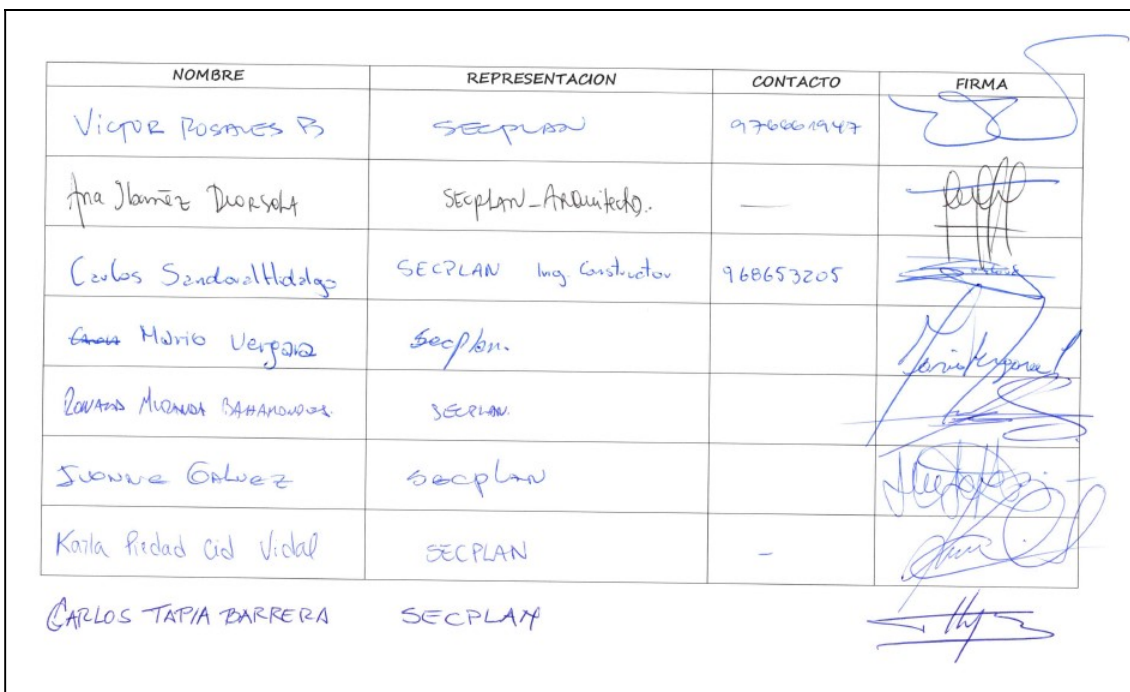 NOMBRE REPRESENTACION CONTACTO FIRMA
VICTOR ROSALES B SECPLAN 976661947
Ana Ibañez DIORSOLA SECPLAN_ARQuitecto. —
Carlos Sandoval Hidalgo SECPLAN Ing. Constructor 968653205
Mario Vergara Secplan.
MIRANDA BAHAMONDES. SECPLAN.
IVONNE GALVEZ Secplan
Karla Piedad Cid Vidal SECPLAN –
CARLOS TAPIA BARRERA SECPLAN